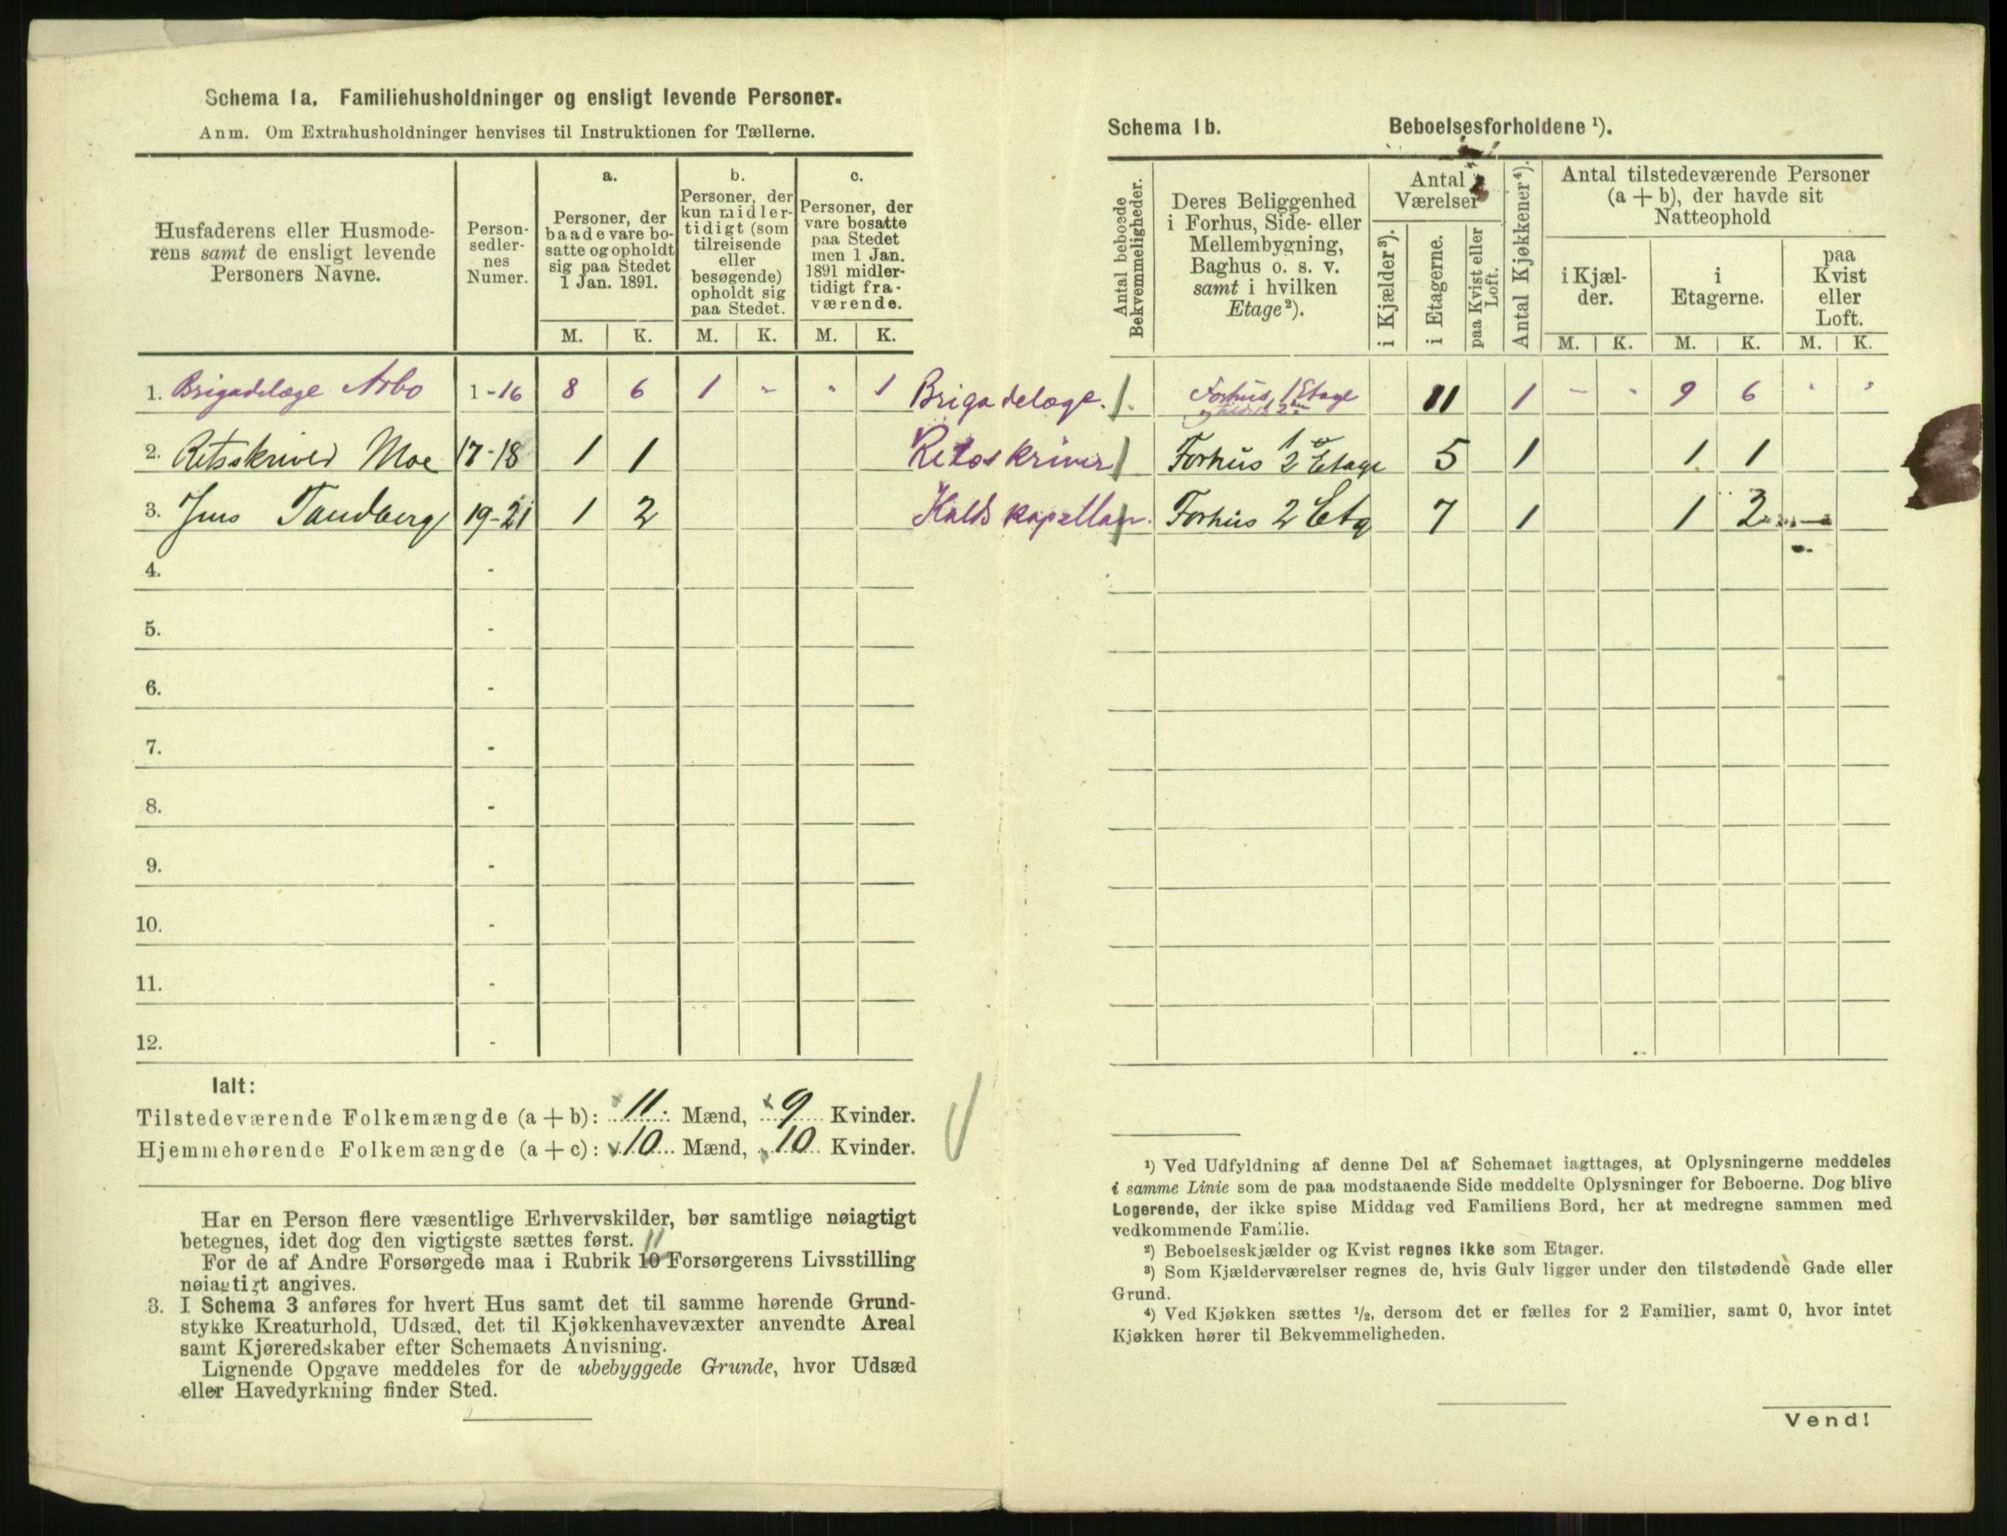 Schema 1a. Familiehusholdninger og ensligt levende Personer.
Anm. Om Extrahusholdninger henvises til Instruktionen for Tællerne.
Husfaderens eller Husmode-
rens samt de ensligt levende
Personers Navne.
Person-
sedler-
nes
Numer.
a.
Personer, der
baade vare bo-
satte og opholdt
sig paa Stedet
1 Jan. 1891.
b.
Personer, der
kun midler-
tidigt (som
tilreisende
eller
besøgende)
opholdt sig
paa Stedet.
c.
Personer, der
vare bosatte
paa Stedet
men 1 Jan.
1891 midler-
tidigt fra-
værende.
M. K. M. K. M. K.
1. Brigadelæge Arbo 1-16 8 6 1 " " 1
2. Retsskriver Moe 17-18 1 1
3. Jens Tandberg 19-21 1 2
4. -
5. -
6. -
7. -
8. -
9. -
10. -
11. -
12. -
Ialt:
Tilstedeværende Folkemængde (a + b): 11 Mænd, 9 Kvinder.
Hjemmehørende Folkemængde (a + c): 10 Mænd, 10 Kvinder.
Har en Person flere væsentlige Erhvervskilder, bør samtlige nøiagtigt
betegnes, idet dog den vigtigste sættes først.
11
For de af Andre Forsørgede maa i Rubrik 10 Forsørgerens Livsstilling
nøiagtigt angives.
3. I Schema 3 anføres for hvert Hus samt det til samme hørende Grund-
stykke Kreaturhold, Udsæd, det til Kjøkkenhavevæxter anvendte Areal
samt Kjøreredskaber efter Schemaets Anvisning.
Lignende Opgave meddeles for de ubebyggede Grunde, hvor Udsæd
eller Havedyrkning finder Sted.
Schema 1b. Beboelsesforholdene ¹).
Antal beboede
Bekvemmeligheder.
Deres Beliggenhed
i Forhus, Side- eller
Mellembygning,
Baghus o. s. v.
samt i hvilken
Etage ²).
Antal
Værelser
i Kjælder ³).
i Etagerne.
paa Kvist eller
Loft.
Antal Kjøkkener ⁴).
Antal tilstedeværende Personer
(a + b), der havde sit
Natteophold
i Kjæl-
der.
i
Etagerne.
paa
Kvist
eller
Loft.
M. K. M. K. M. K.
Brigadelæge. 1. Forhus, 1 Etage 11 1 - " 9 6 " "
Retsskriver 1 Forhus 2 Etage 5 1 1 1
Kaldskapellan. 1 Forhus 2 Etg 7 1 1 2
¹) Ved Udfyldning af denne Del af Schemaet iagttages, at Oplysningerne meddeles
i samme Linie som de paa modstaaende Side meddelte Oplysninger for Beboerne. Dog blive
Logerende, der ikke spise Middag ved Familiens Bord, her at medregne sammen med
vedkommende Familie.
²) Beboelseskjælder og Kvist regnes ikke som Etager.
³) Som Kjælderværelser regnes de, hvis Gulv ligger under den tilstødende Gade eller
Grund.
⁴) Ved Kjøkken sættes ½, dersom det er fælles for 2 Familier, samt 0, hvor intet
Kjøkken hører til Bekvemmeligheden.
Vend!